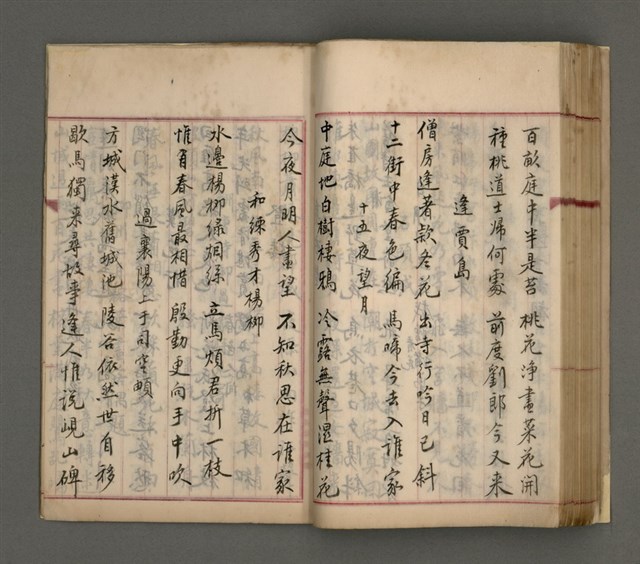 百畝庭中半是苔 桃花淨盡菜花開
種桃道士歸何處 前度劉郎今又來
逢賈島
僧房逢著款冬花 出寺行吟日已斜
十二街中春色徧 馬啼今去入誰家
十五夜望月
中庭地白樹棲鴉 冷露無聲濕桂花
今夜月明人盡望 不知秋思在誰家
和練秀才楊柳
水邊楊柳綠烟絲 立馬煩君折一枝
惟有春風最相惜 殷勤更向手中吹
過襄陽上于司空頔
方城漢水舊城池 陵谷依然世自移
歇馬獨來尋故事 逢人惟說峴山碑